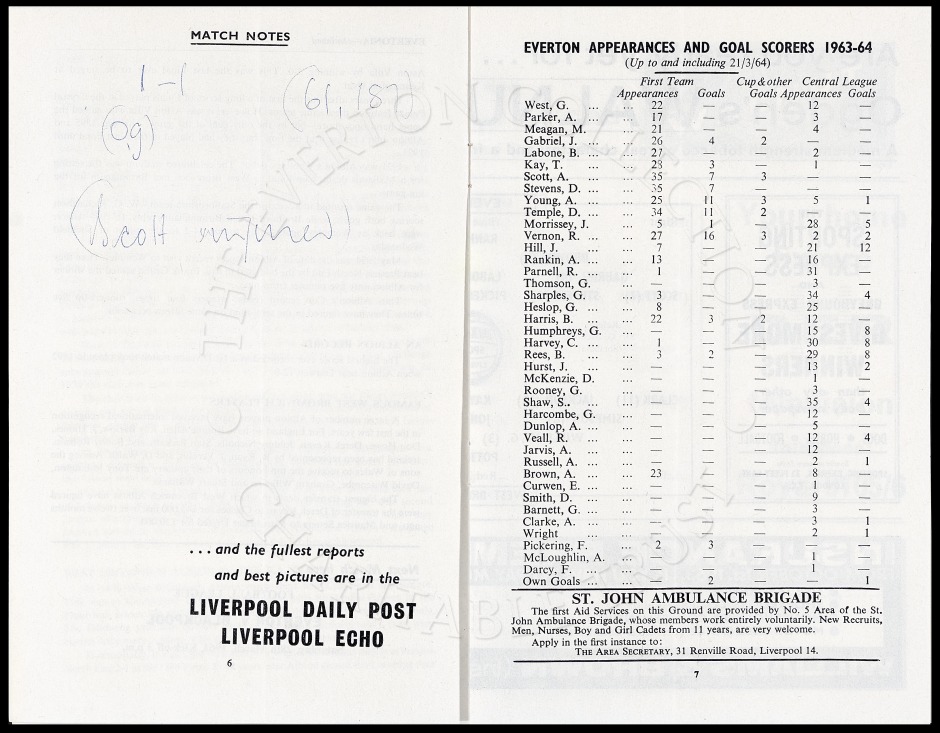 MATCH NOTES
1-1
(61,187)
(og)
(Scott injured)
... and the fullest reports
and best pictures are in the
LIVERPOOL DAILY POST
LIVERPOOL ECHO
6
EVERTON APPEARANCES AND GOAL SCORERS 1963-64
(Up to and including 21/3/64)
First Team Cup & other Central League
Appearances Goals Goals Appearances Goals
West, G. ... ... 22 — — 12 —
Parker, A. ... ... 17 — — 3 —
Meagan, M. ... 21 — — 4 —
Gabriel, J. ... ... 26 4 2 — —
Labone, B. ... ... 27 — — 2 —
Kay, T. ... ... 28 3 — 1 —
Scott, A. ... ... 35 7 3 — —
Stevens, D. ... ... 35 7 — — —
Young, A. ... ... 25 11 3 5 1
Temple, D. ... ... 34 11 2 — —
Morrissey, J. ... 5 1 — 28 5
Vernon, R. ... ... 27 16 3 2 2
Hill, J. ... ... 7 — — 21 12
Rankin, A. ... ... 13 — — 16 —
Parnell, R. ... ... 1 — — 31 —
Thomson, G. ... — — — 3 —
Sharples, G. ... 3 — — 34 4
Heslop, G. ... ... 8 — — 25 —
Harris, B. ... ... 22 3 2 12 —
Humphreys, G. ... — — — 15 8
Harvey, C. ... ... 1 — — 30 8
Rees, B. ... ... 3 2 — 29 8
Hurst, J. ... ... — — — 13 2
McKenzie, D. ... — — — 1 —
Rooney, G. ... — — — 3 —
Shaw, S.. ... ... — — — 35 4
Harcombe, G. ... — — — 12 —
Dunlop, A. ... ... — — — 5 —
Veall, R. ... ... — — — 12 4
Jarvis, A. ... ... — — — 12 —
Russell, A. ... ... — — — 2 1
Brown, A. ... ... 23 — — 8 —
Curwen, E. ... ... — — — 1 —
Smith, D. ... ... — — — 9 —
Barnett, G. ... ... — — — 3 —
Clarke, A. ... ... — — — 3 1
Wright ... ... — — — 2 1
Pickering, F. ... 2 3 — — —
McLoughlin, A. ... — — — 1 —
Darcy, F. ... ... — — — 1 —
Own Goals ... ... 2 — 1
ST. JOHN AMBULANCE BRIGADE
The first Aid Services on this Ground are provided by No. 5 Area of the St.
John Ambulance Brigade, whose members work entirely voluntarily. New Recruits,
Men, Nurses, Boy and Girl Cadets from 11 years, are very welcome.
Apply in the first instance to:
THE AREA SECRETARY, 31 Renville Road, Liverpool 14.
7